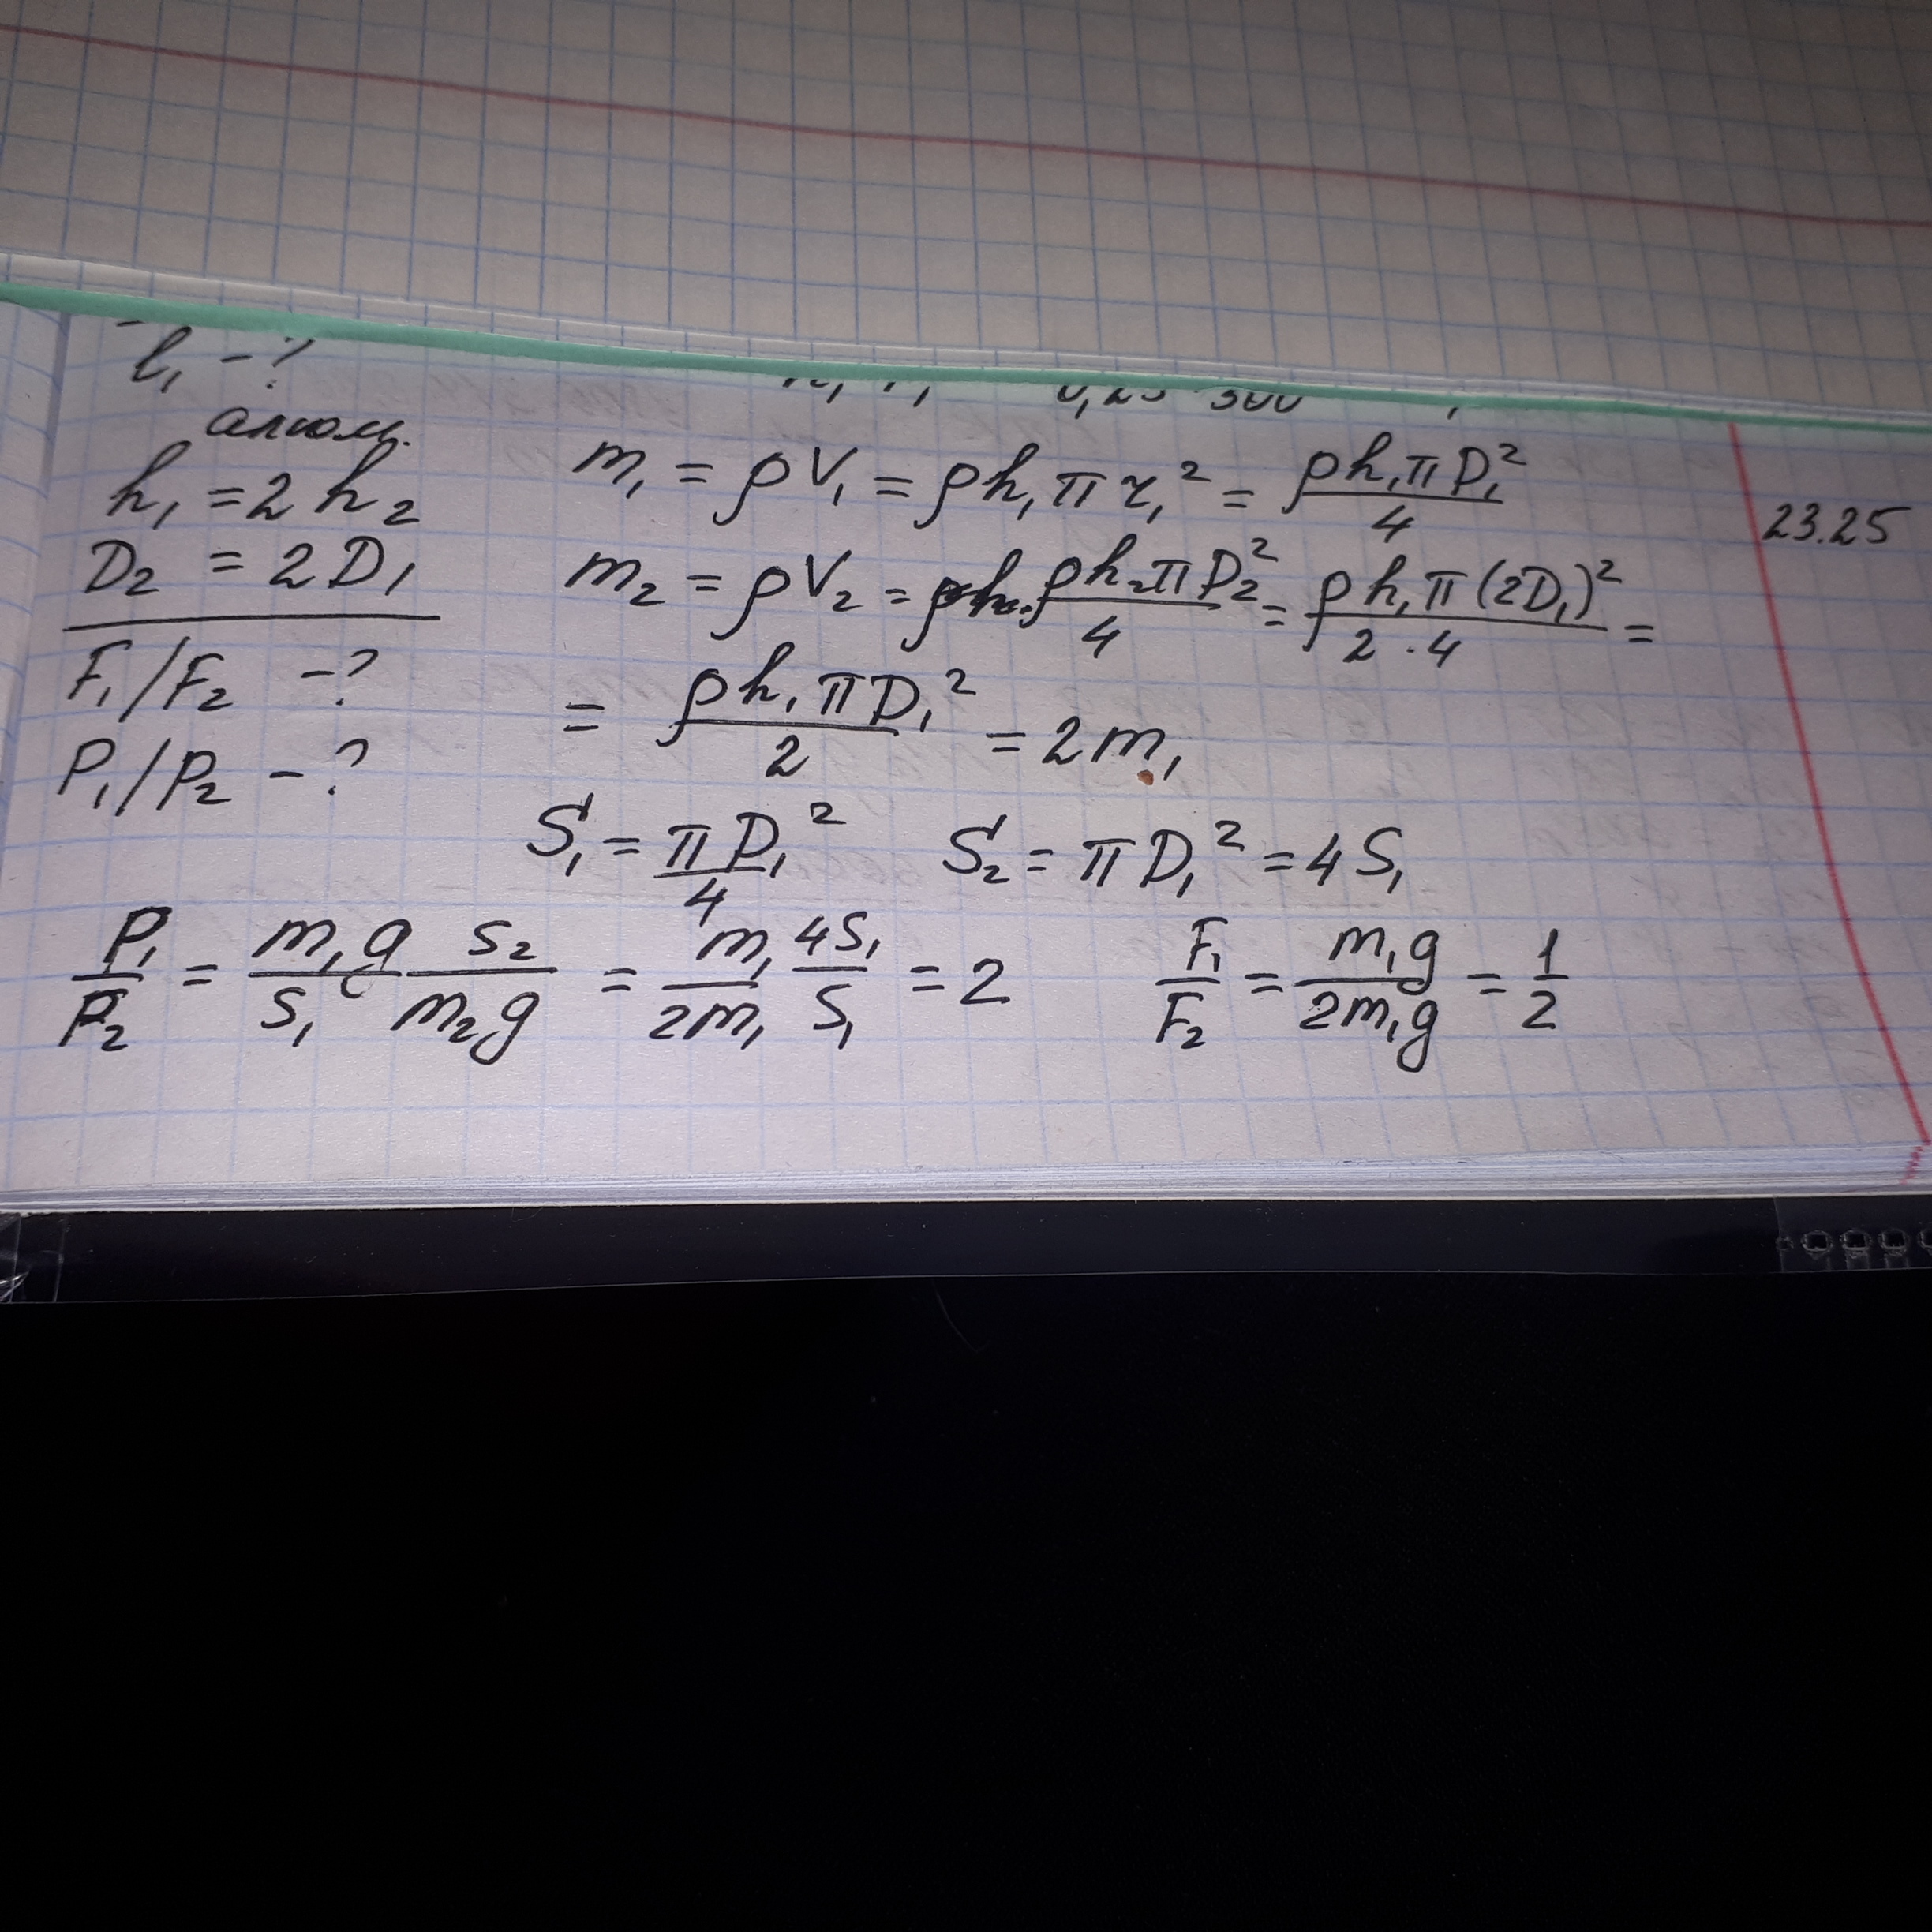 l₁ - ?
алюм.
h₁ = 2 h₂
D₂ = 2D₁
F₁/F₂ - ?
P₁/P₂ - ?
0,25 300
m₁ = ρV₁ = ρh₁πr₁² = ρh₁πD₁²/4
m₂ = ρV₂ = ρh₂πD₂²/4 = ρh₁π(2D₁)²/2·4 =
= ρh₁πD₁²/2 = 2m₁
S₁ = πD₁²/4 S₂ = πD₁² = 4S₁
P₁/P₂ = m₁g/S₁ S₂/m₂g = m₁/2m₁ 4S₁/S₁ = 2 F₁/F₂ = m₁g/2m₁g = 1/2
23.25